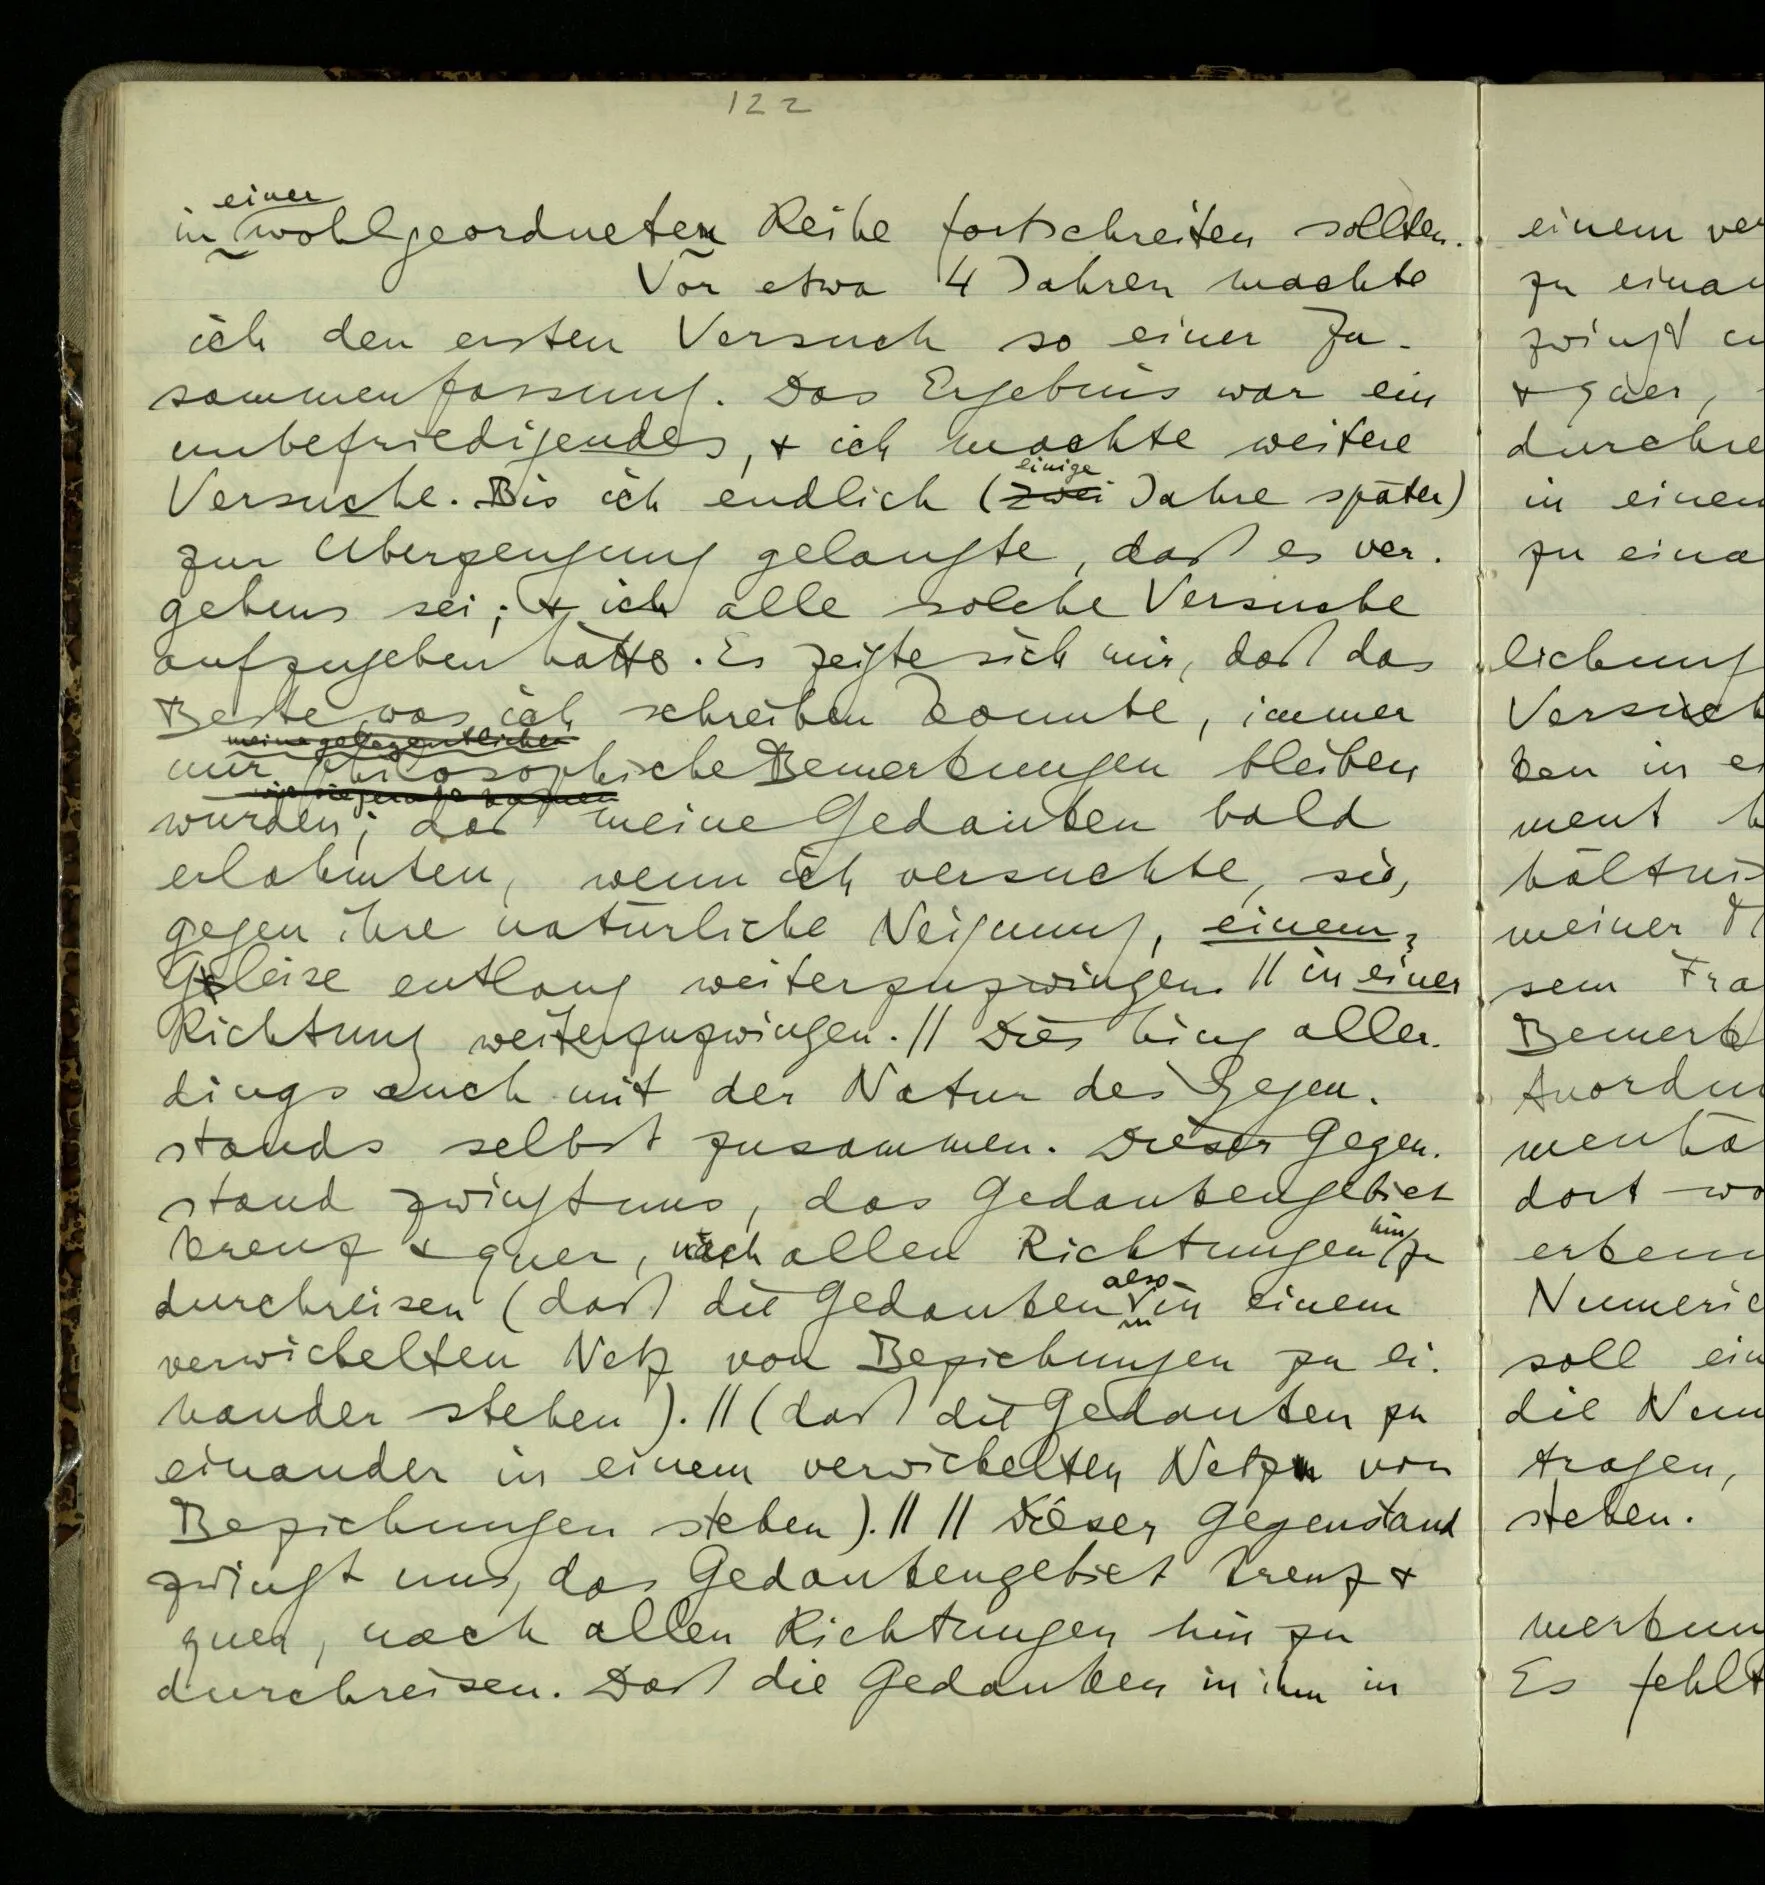 122
einer
in wohlgeordneten Reihe fortschreiten sollten.
Vor etwa 4 Jahren machte
ich den ersten Versuch so einer Zu-
sammenfassung. Das Ergebnis war ein
unbefriedigendes, & ich machte weitere
einige
Versuche. Bis ich endlich (zwei Jahre später)
zur Überzeugung gelangte, daß es ver-
gebens sei; & ich alle solche Versuche
aufzugeben hätte. Es zeigte sich mir, daß das
Beste, was ich schreiben konnte, immer
meine gelegentlichen
nur philosophische Bemerkungen bleiben
würden; daß meine Gedanken bald
erlahmten, wenn ich versuchte, sie,
gegen ihre natürliche Neigung, einem
Gleise entlang weiterzuzwingen. // in einer
Richtung weiterzuzwingen. // Dies hing aller-
dings auch mit der Natur des Gegen-
stands selbst zusammen. Dieser Gegen-
stand zwingt uns, das Gedankengebiet
hin
kreuz & quer, nach allen Richtungen zu
also
durchreisen (daß die Gedanken in einem
verwickelten Netz von Beziehungen zu ei-
nander stehen). // (daß die Gedanken zu
einander in einem verwickelten Netz von
Beziehungen stehen). // // Dieser Gegenstand
zwingt uns, das Gedankengebiet kreuz &
quer, nach allen Richtungen hin zu
durchreisen. Daß die Gedanken in ihm in
einem ver
zu einan
zwingt
& quer,
durchre
in einem
zu eina
lichung
Versuch
ken in ei
ment h
hältnis
meiner
sem Fra
Bemerk
Anordnu
menhä
dort wo
erkenn
Numeric
soll ein
die Num
tragen,
stehen.
merkun
Es fehlt